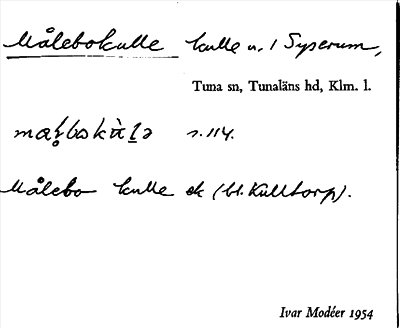 Målebokulle kulle n. 1 Syserum,
Tuna sn, Tunaläns hd, Klm. l.
s. 114.
Målebo kulle ek (bl. Kulltorp).
Ivar Modéer 1954